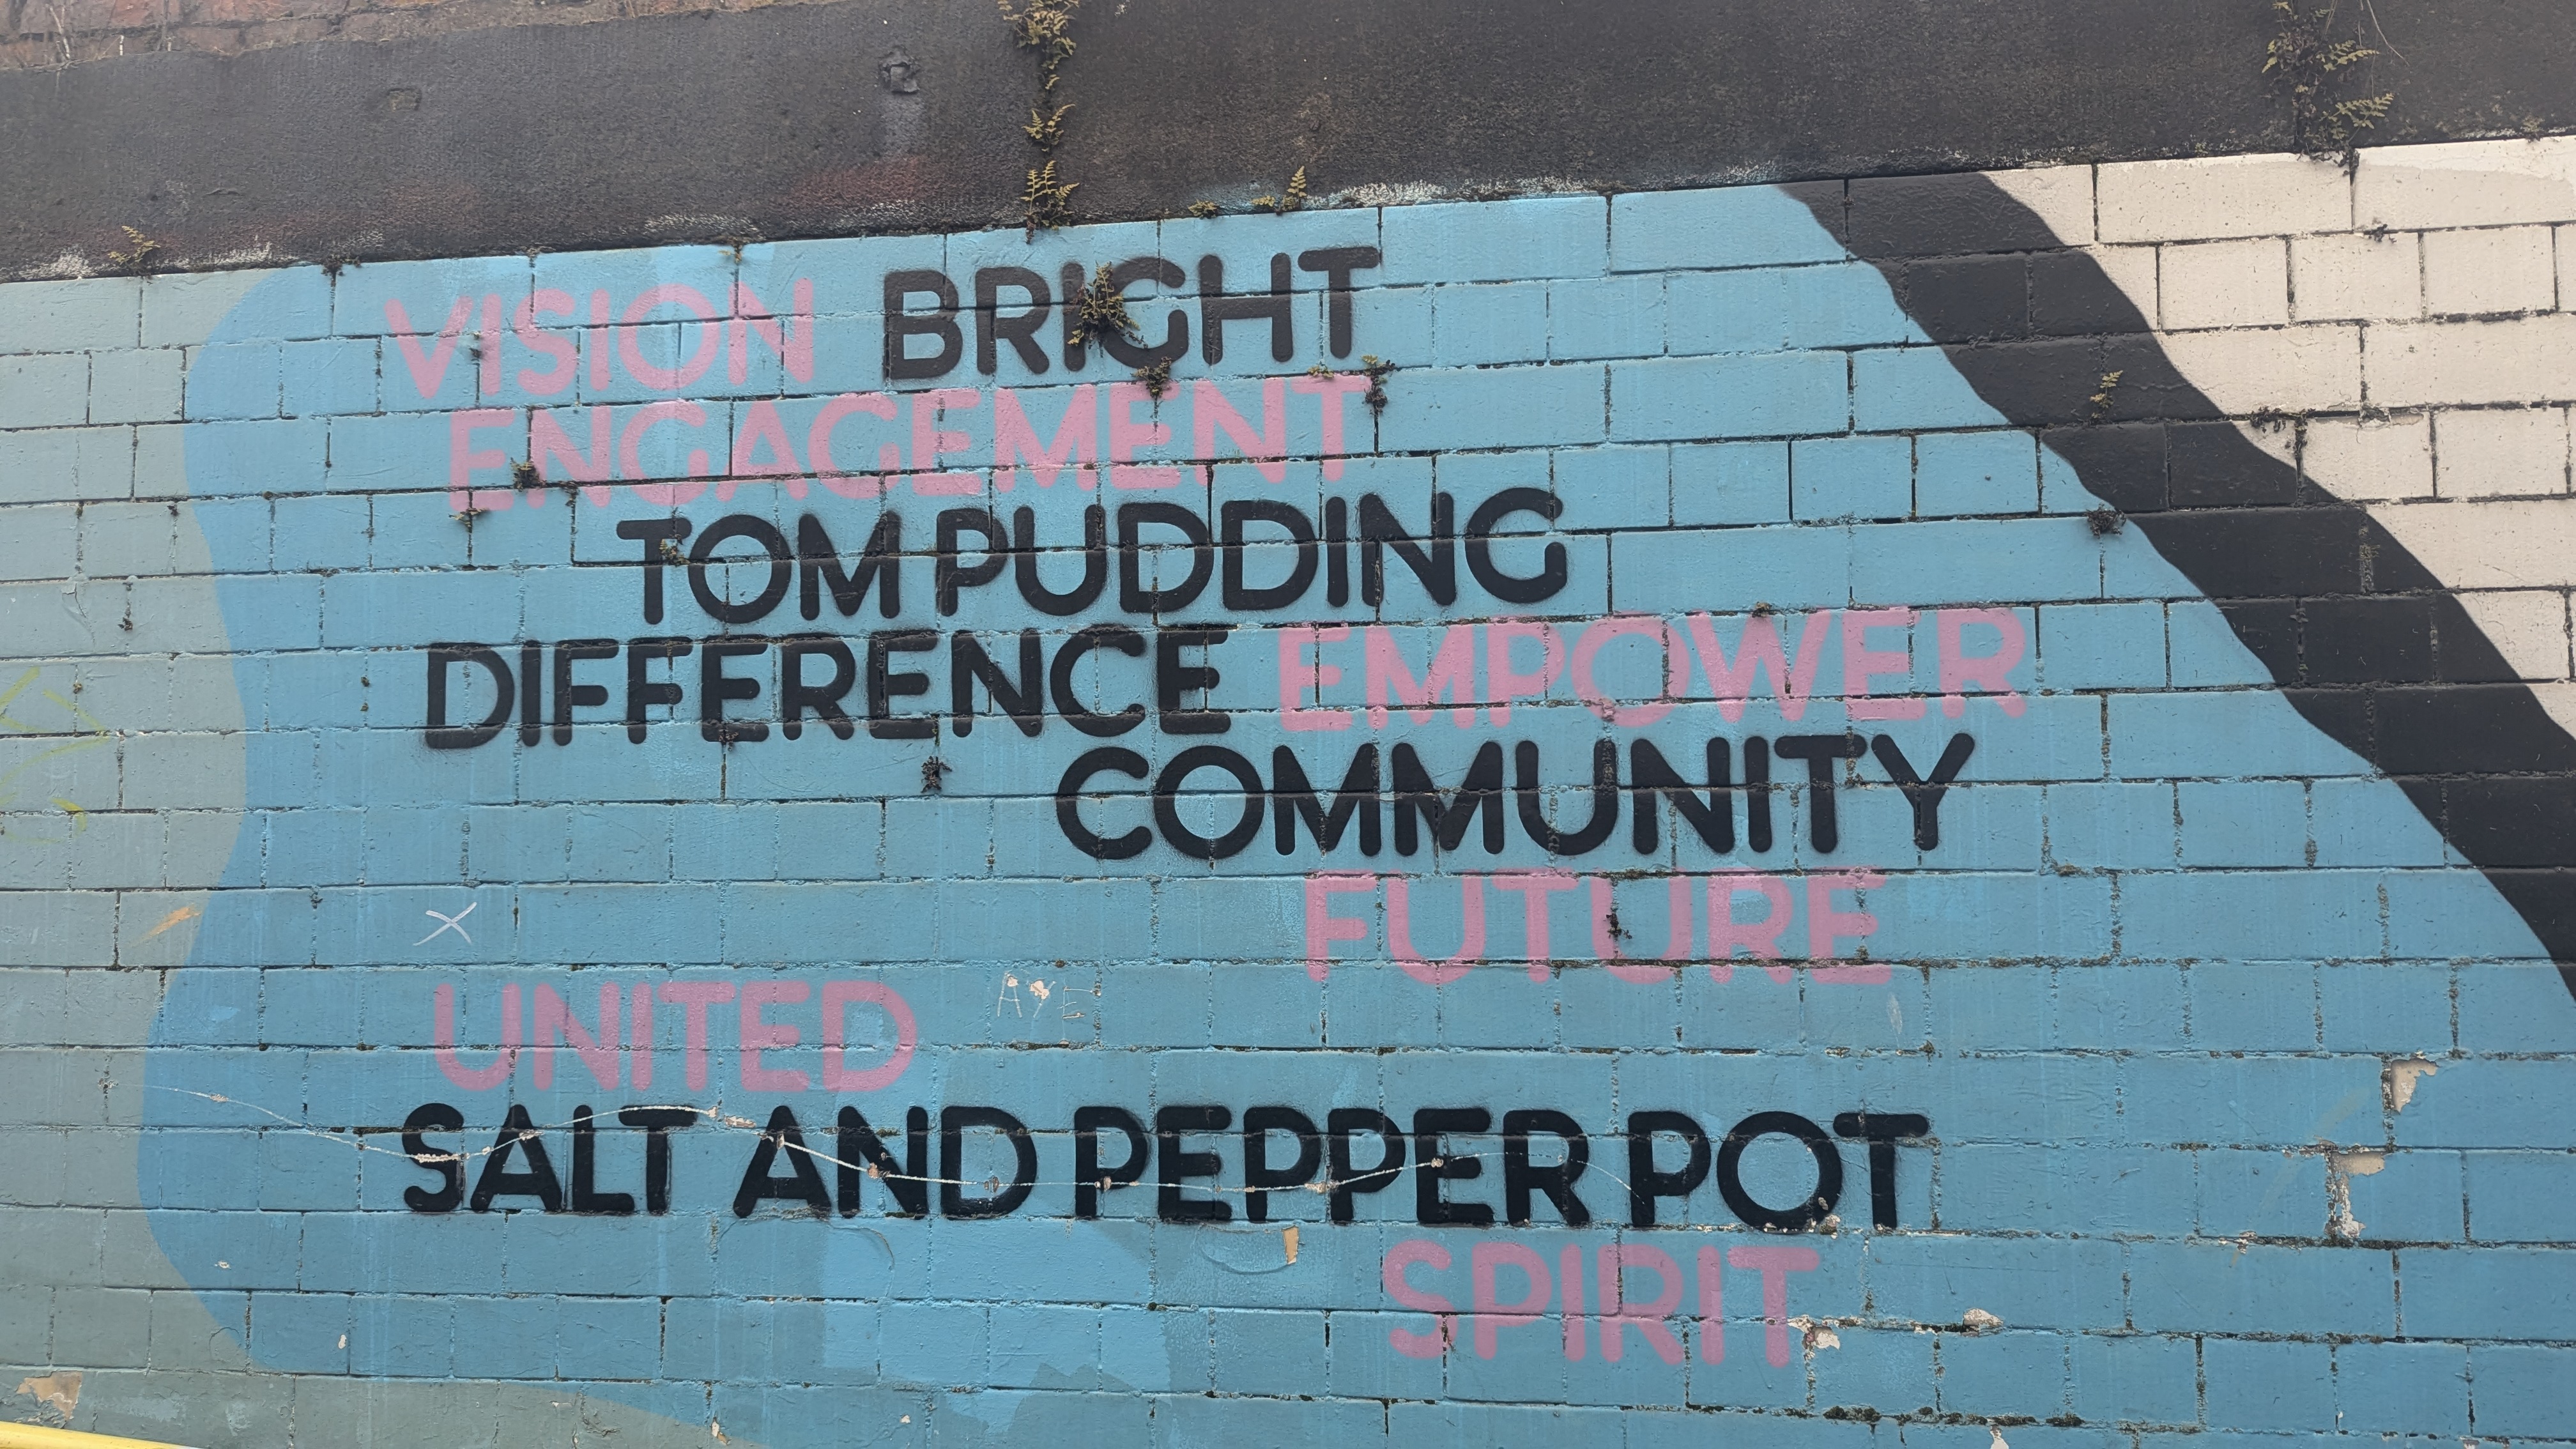 VISION BRIGHT
ENGAGEMENT
TOM PUDDING
DIFFERENCE EMPOWER
COMMUNITY
FUTURE
UNITED
AYE
SALT AND PEPPER POT
SPIRIT